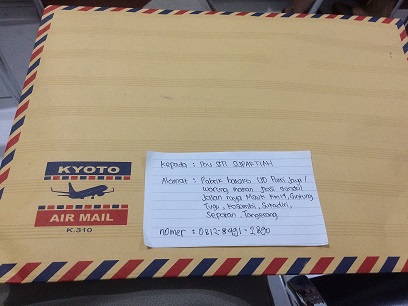 KYOTO
AIR MAIL
K.310
Kepada : Ibu SITI SUPARTIAH
Alamat : Pabrik batako UD Putri Jaya /
warung makan Nasi Gandul
Jalan raya Mauk KM14, Gintung
Tugu, Kosambi, Sukadiri,
Sepatan, Tangerang
nomer : 0812-8491-2890